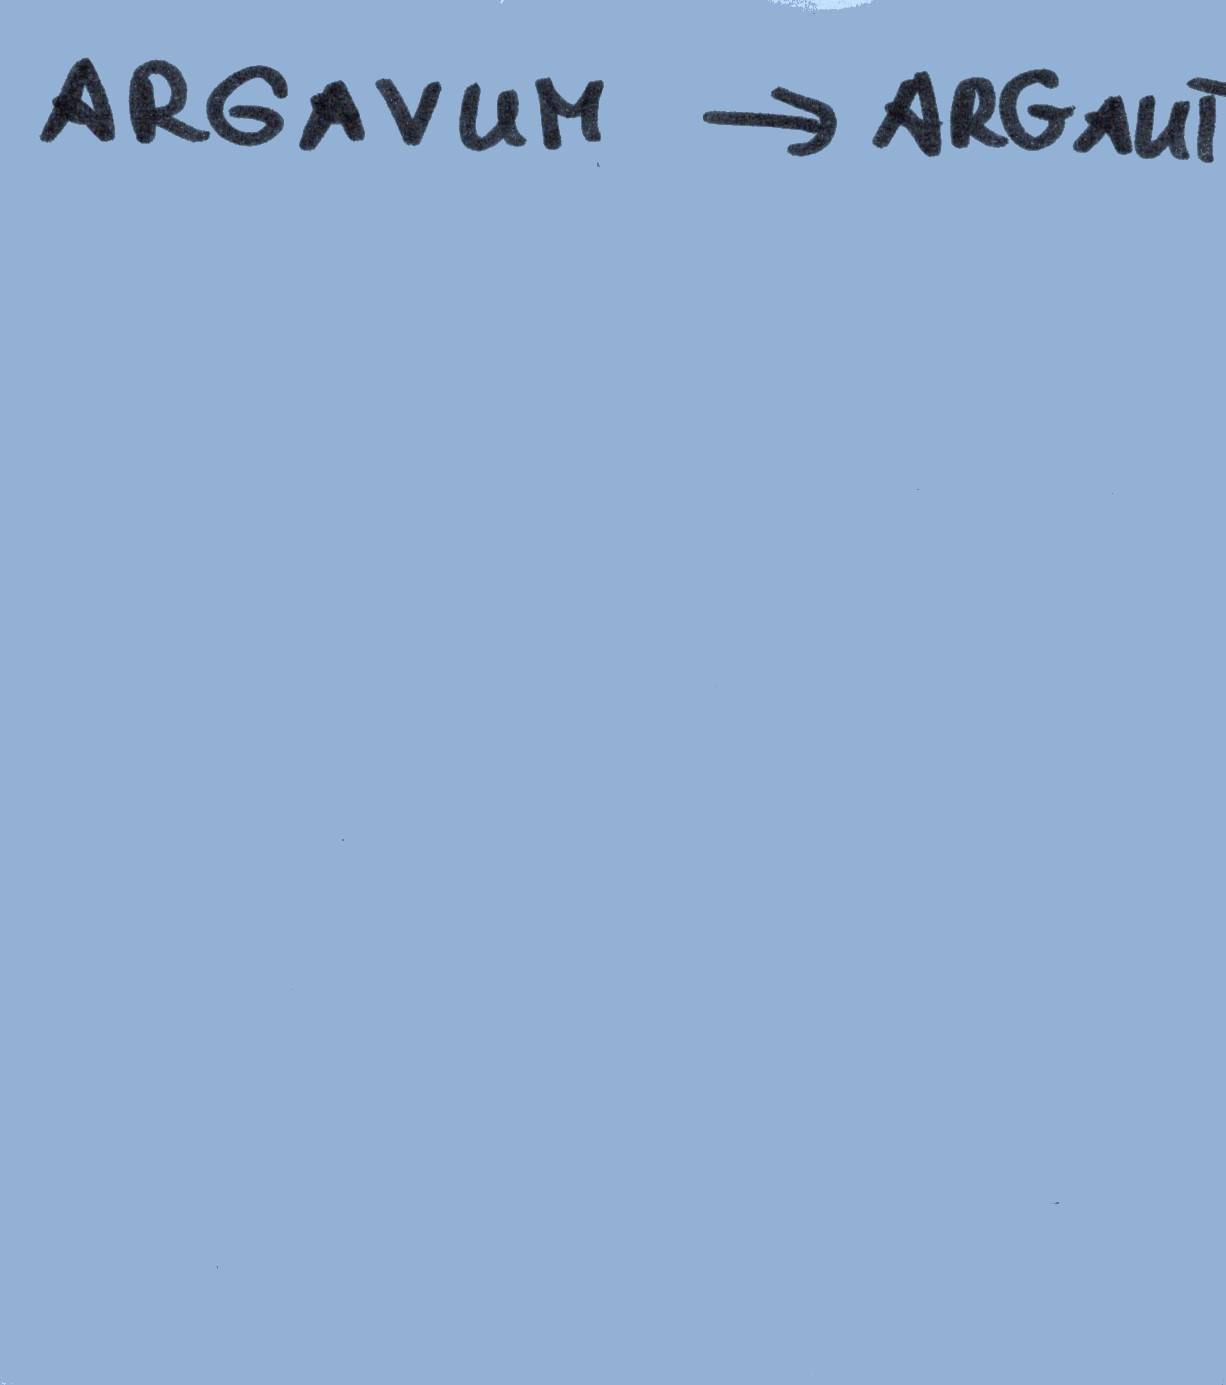 ARGAVUM → ARGAUT